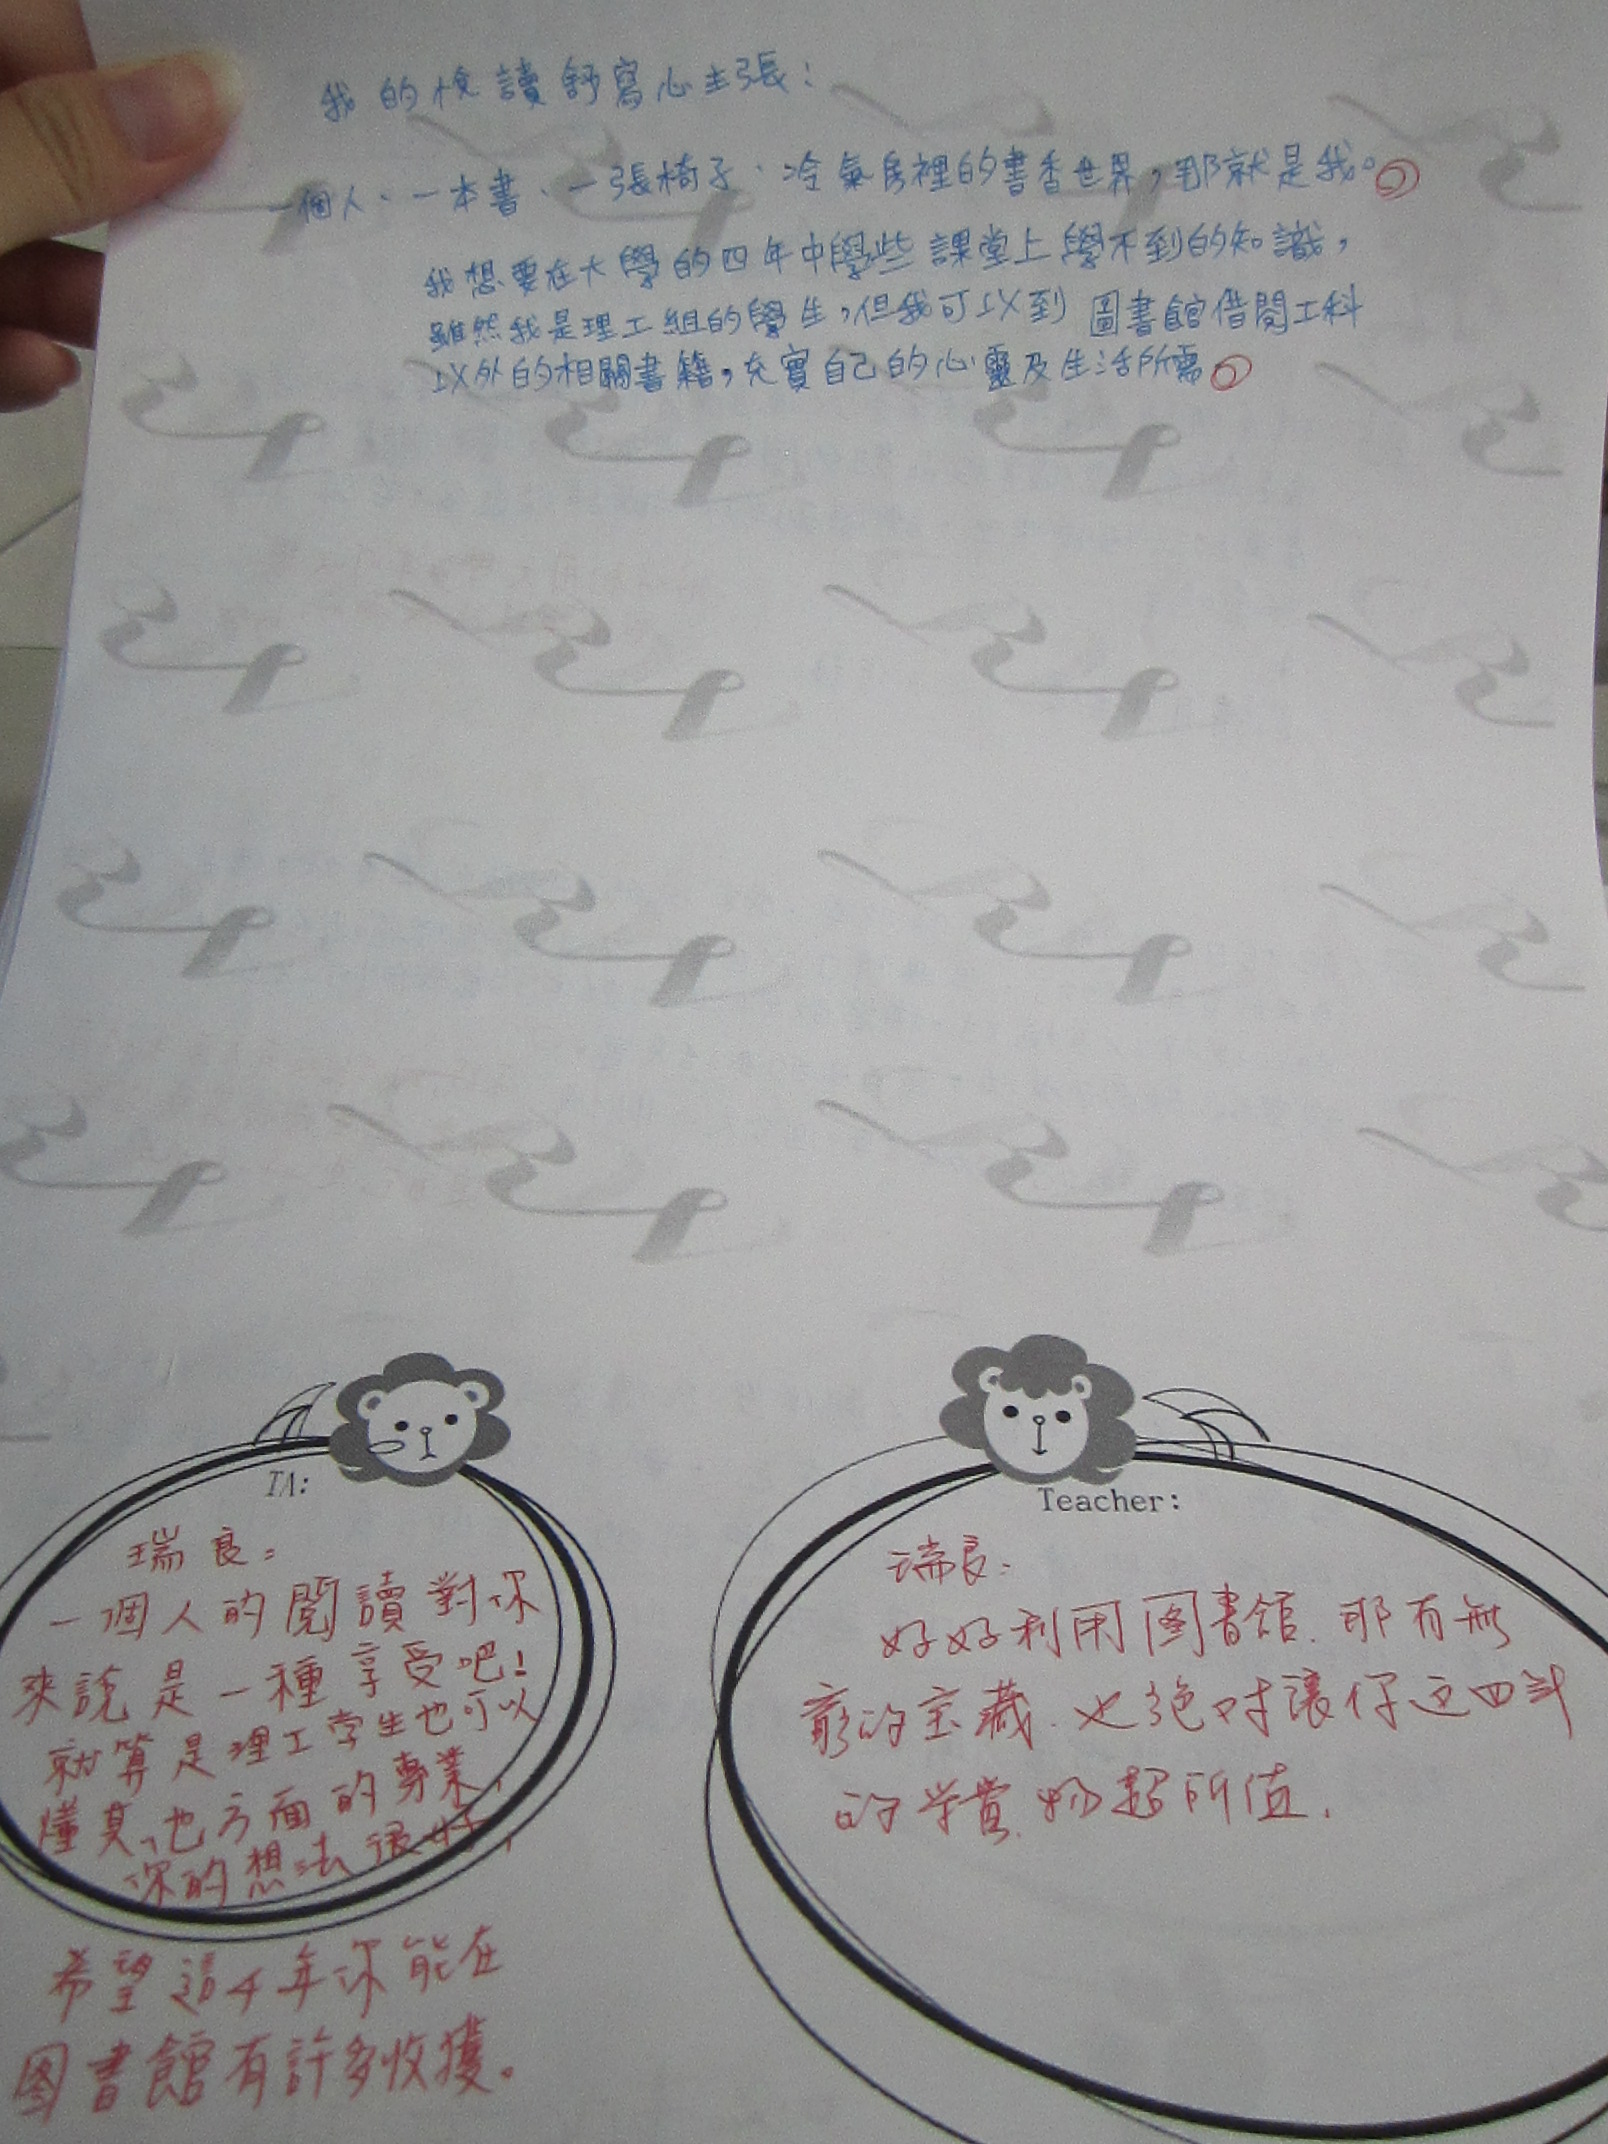 我的悅讀舒寫心主張：
一個人、一本書、一張椅子、冷氣房裡的書香世界，那就是我。
我想要在大學的四年中學些課堂上學不到的知識，
雖然我是理工組的學生，但我可以到圖書館借閱工科
以外的相關書籍，充實自己的心靈及生活所需。
TA:
瑞良：
一個人的閱讀對你
來說是一種享受吧！
就算是理工学生也可以
懂其他方面的專業，
你的想法很好，
希望這4年你能在
圖書館有許多收獲。
Teacher:
瑞良：
好好利用图書馆，那有無
窮的宝藏，也绝对讓你这四年
的学费，物超所值．